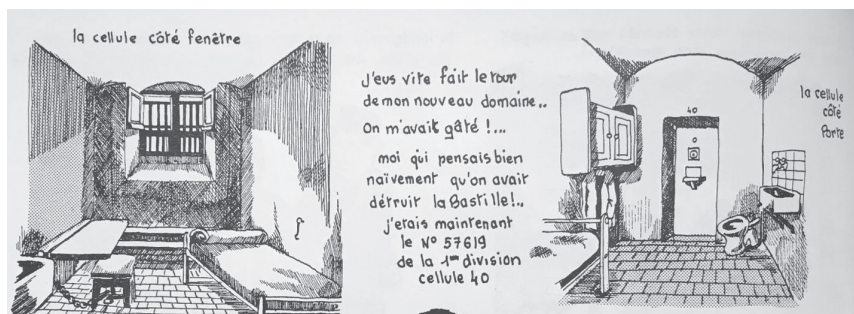 la cellule côté fenêtre
J'eus vite fait le tour
de mon nouveau domaine..
On m'avait gâté !...
moi qui pensais bien
naïvement qu'on avait
détruit la Bastille!..
j'étais maintenant
le N° 57619
de la 1ère division
cellule 40
40
la cellule
côté
Porte